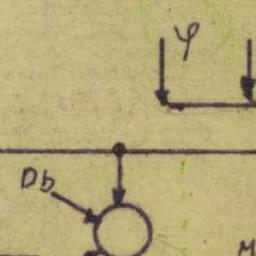 φ
Db
M